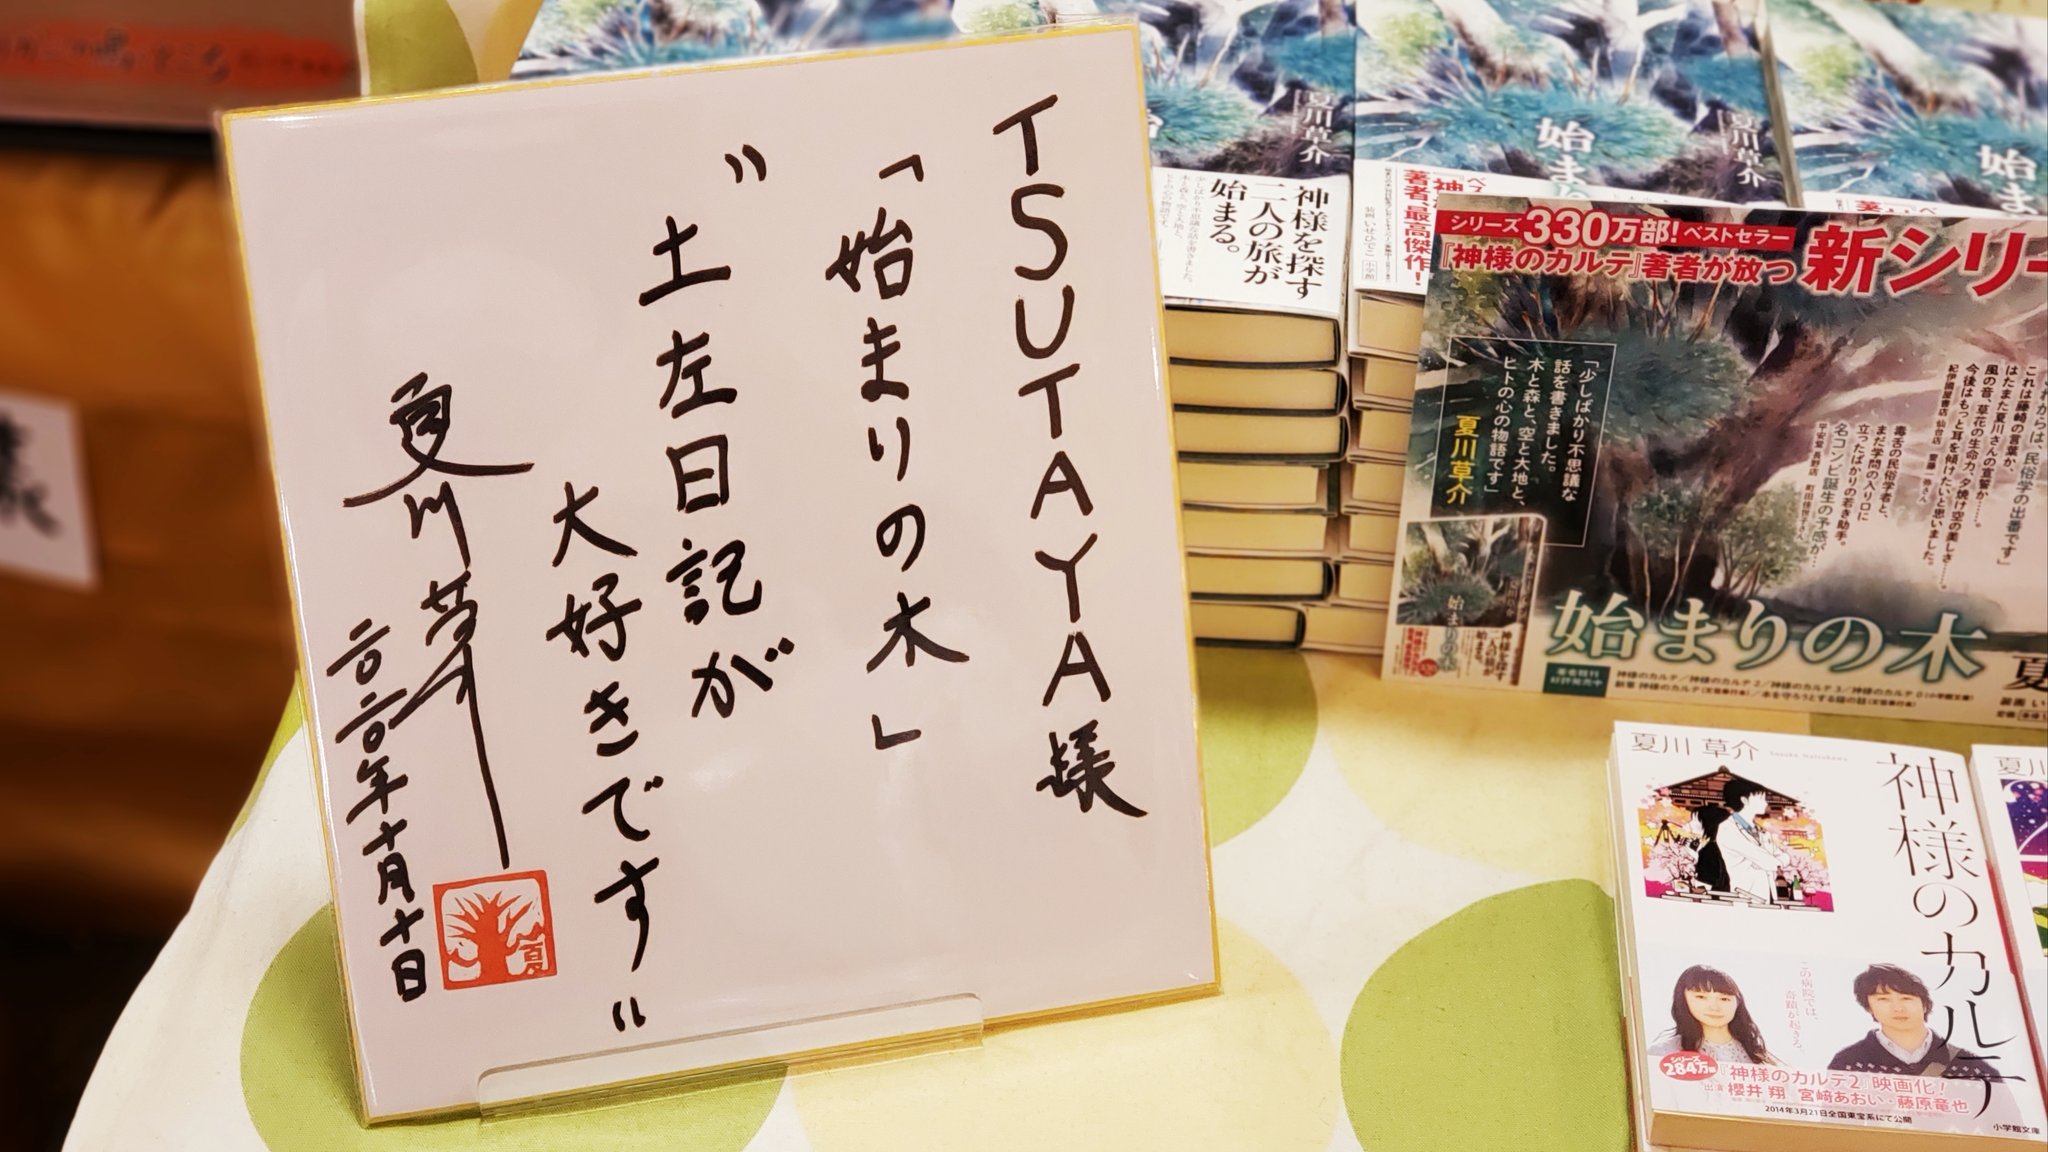 TSUTAYA様
「始まりの木」
“土左日記が
大好きです”
夏川草介
二〇二〇年十月十日
夏
夏川草介
始ま
夏川草介
始ま
始ま
神様を探す
二人の旅が
始まる。
著者、最高傑作!
シリーズ330万部!ベストセラー
『神様のカルテ』著者が放つ 新シリー
「少しばかり不思議な
話を書きました。
木と森と、空と大地と、
ヒトの心の物語です」
夏川草介
これからは、民俗学の出番です」
これは藤崎の言葉か、
はたまた夏川さんの宣誓か……。
風の音、草花の生命力、夕焼け空の美しさ……。
今後はもっと耳を傾けたいと思いました。
紀伊國屋書店 仙台店
毒舌の民俗学者と、
まだ学問の入り口に
立ったばかりの若き助手。
名コンビ誕生の予感が…
平安堂長野店
始まりの木
夏
神様のカルテ/神様のカルテ2/神様のカルテ3/神様のカルテ0
夏川 草介
Sosuke Natsukawa
神様のカルテ
この病院では、
奇蹟が起きる。
シリーズ
284万部
『神様のカルテ2』映画化!
出演 櫻井 翔 宮﨑あおい・藤原竜也
2014年3月21日全国東宝系にて公開
小学館文庫
夏川